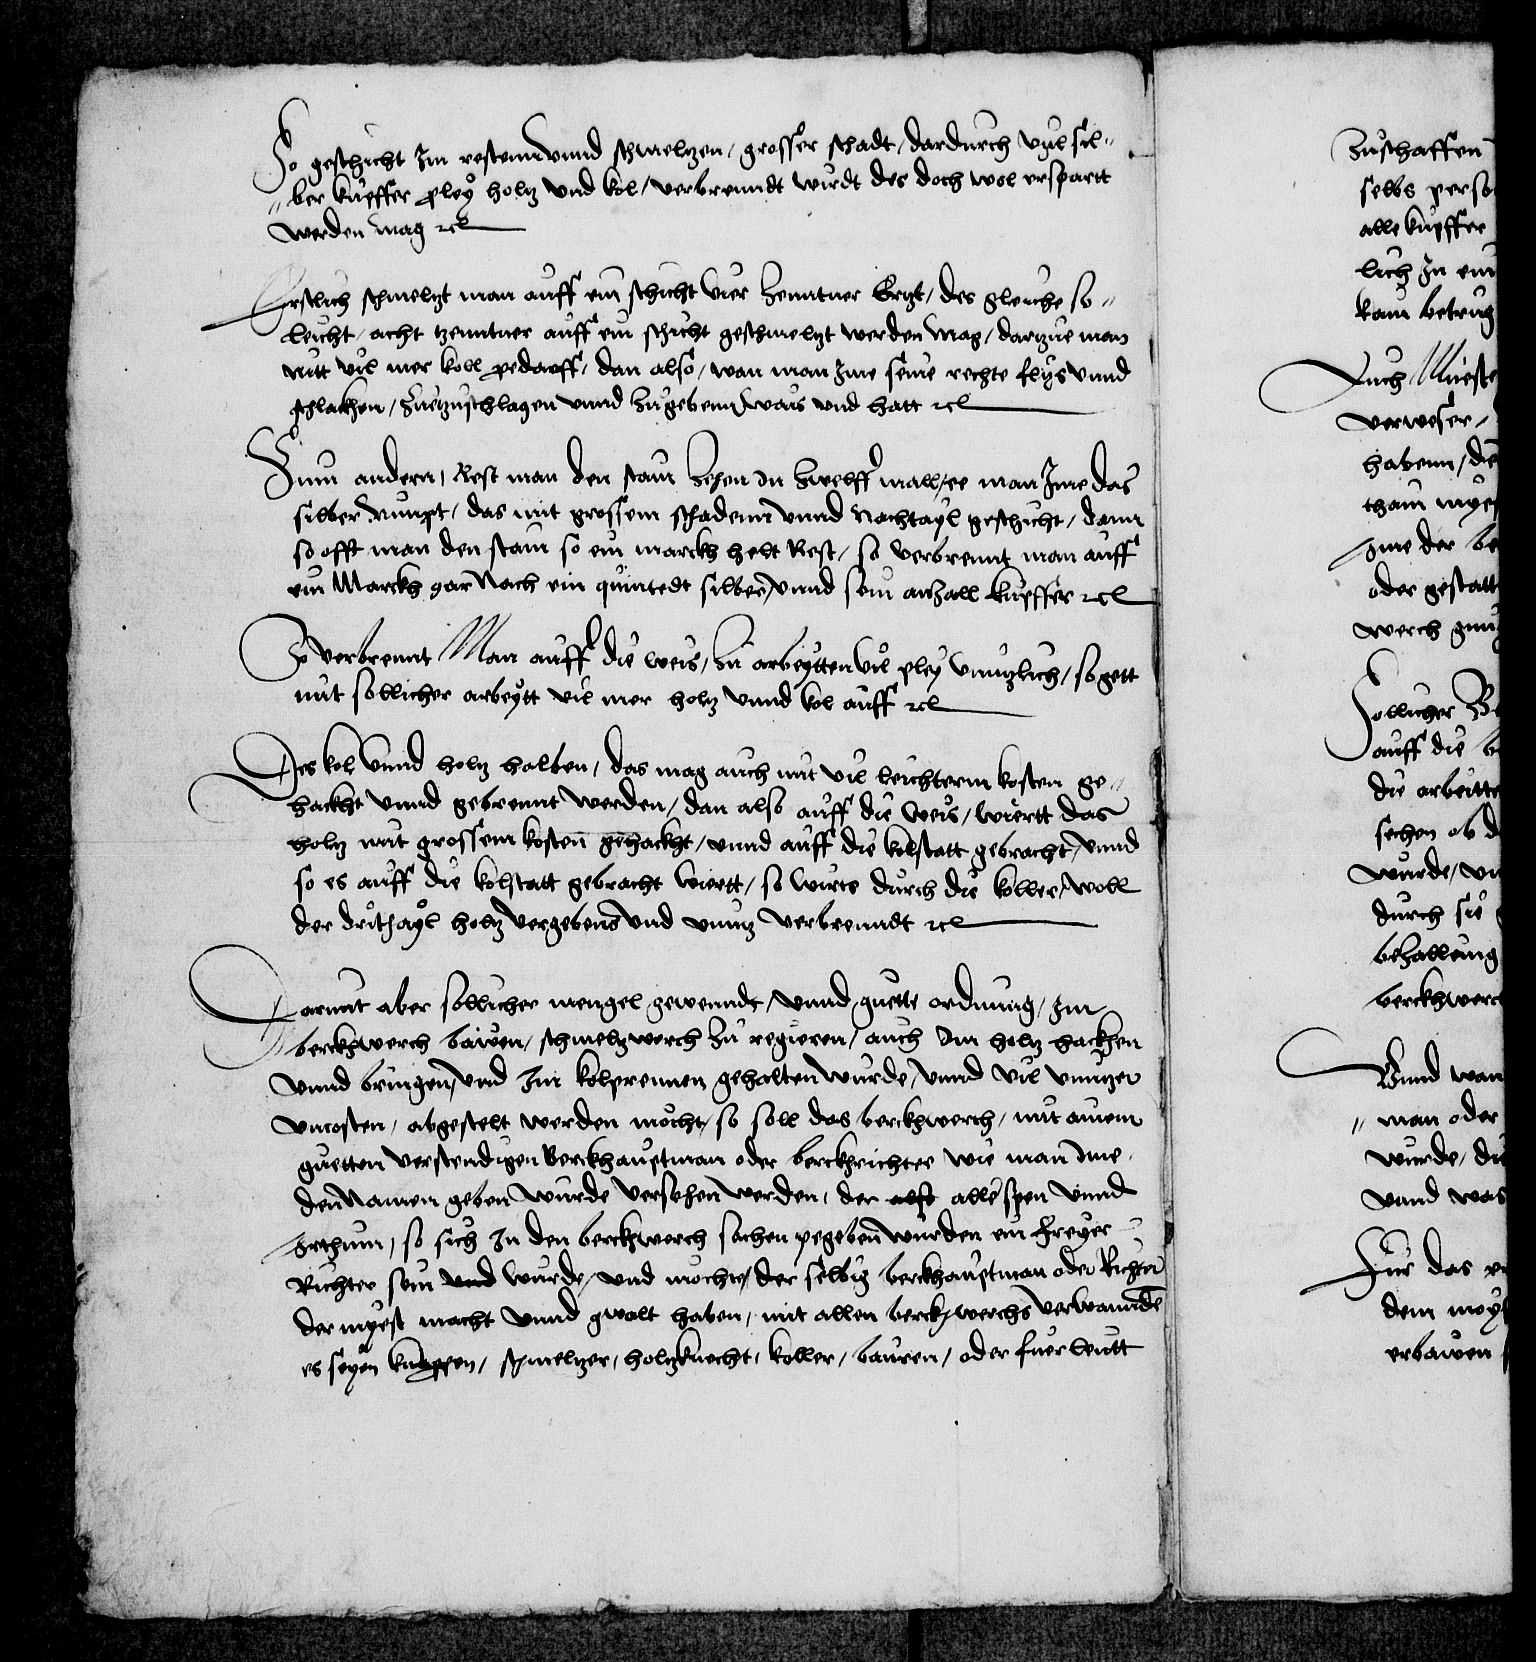 So geschicht Im resten vnnd schmeltzen, grosser schadt, dardurch vyl sil„
„ber kupffer pley holtz vnd kol, verbrenndt wirdt des doch wol erspartt
werden mag ꝛc
Erstlich schmeltzt man auff ein schicht vier Zenntner Ertzt, des gleiche so„
leicht, acht tzenntner auff ein schicht geschmeltzt werden mag, dartzue man
nitt vil mer koll pedarff, dan also, wan man Ime seine rechte flys vnnd
schlackhen, Zuetzuschlagen vnnd Zugebenn wais vnd hatt ꝛc
Zum andern, Rest man den stain Zehen In Zwelff mall, ee man Ime das
silber nimpt, das mit grossem schadenn vnnd Nachtayl geschicht, dann
so offt man den stain so ein marckh helt Rest, so verbrennt man auff
ein Marckh gar Nach ein quintedt silber, vnnd sein anzall kupffer ꝛc
So verbrennt Man auff die weis, Zu arbeytten vil pley vnnutzlich, so gett
mit sollicher arbeytt vil mer holtz vnnd kol auff ꝛc
Des kol vnnd holtz halben, das mag auch mit vil leichterm kosten ge„
hackht vnnd gebrennt werden, dan also auff die weis, wiertt das
holtz mit grossem kosten gehackht, vnnd auff die kolstatt gebracht, vnnd
so es auff die kolstatt gebracht wiertt, so wirts durch die koller, woll
der dritthayl holtz vergebens vnd vnnutz verbrenndt ꝛc
Darmit aber sollicher mengel gewenndt, vnnd guette ordnung, Im
berckhwerch bawen, schmeltzwerch Zu regieren, auch Im holtz hackhen
vnnd bringen, vnd Im kolprennen gehalten wurde, vnnd vil vnnutzer
vncosten, abgestelt werden mocht, so soll das berckhwerch, mit ainem
guetten verstendigen Berckhauptman oder berckhrichter wie man Ime
den Namen geben wurde versehen werden, der alle spen vnnd
Irthum, so sich In den berckhwerch sachen pegeben wurden ein freyer
Richter sein vnd wurde, vnd mochte, der selbig berckhauptman oder Richter
der myest macht vnnd gwalt haben, mit allen berckhwerchs verwanndten
es seyen knappen, schmeltzer, holtzknecht, koller, bauren, oder fuer leutt
Zuschaffen
selbs perso
alle kupffer
lich In ein
kain betrug
Auch Mueste
verweser,
habenn, die
thain myes
Ime der be
oder gestatt
werch gnu
Sollicher Be
auff die b
die arbeitte
sechen ob d
wurde, vn
durch sie
behalltung
berckhwerc
Vnnd wan
„ man oder
wurde, die
vnnd was
Für das
dem moy
erbawen